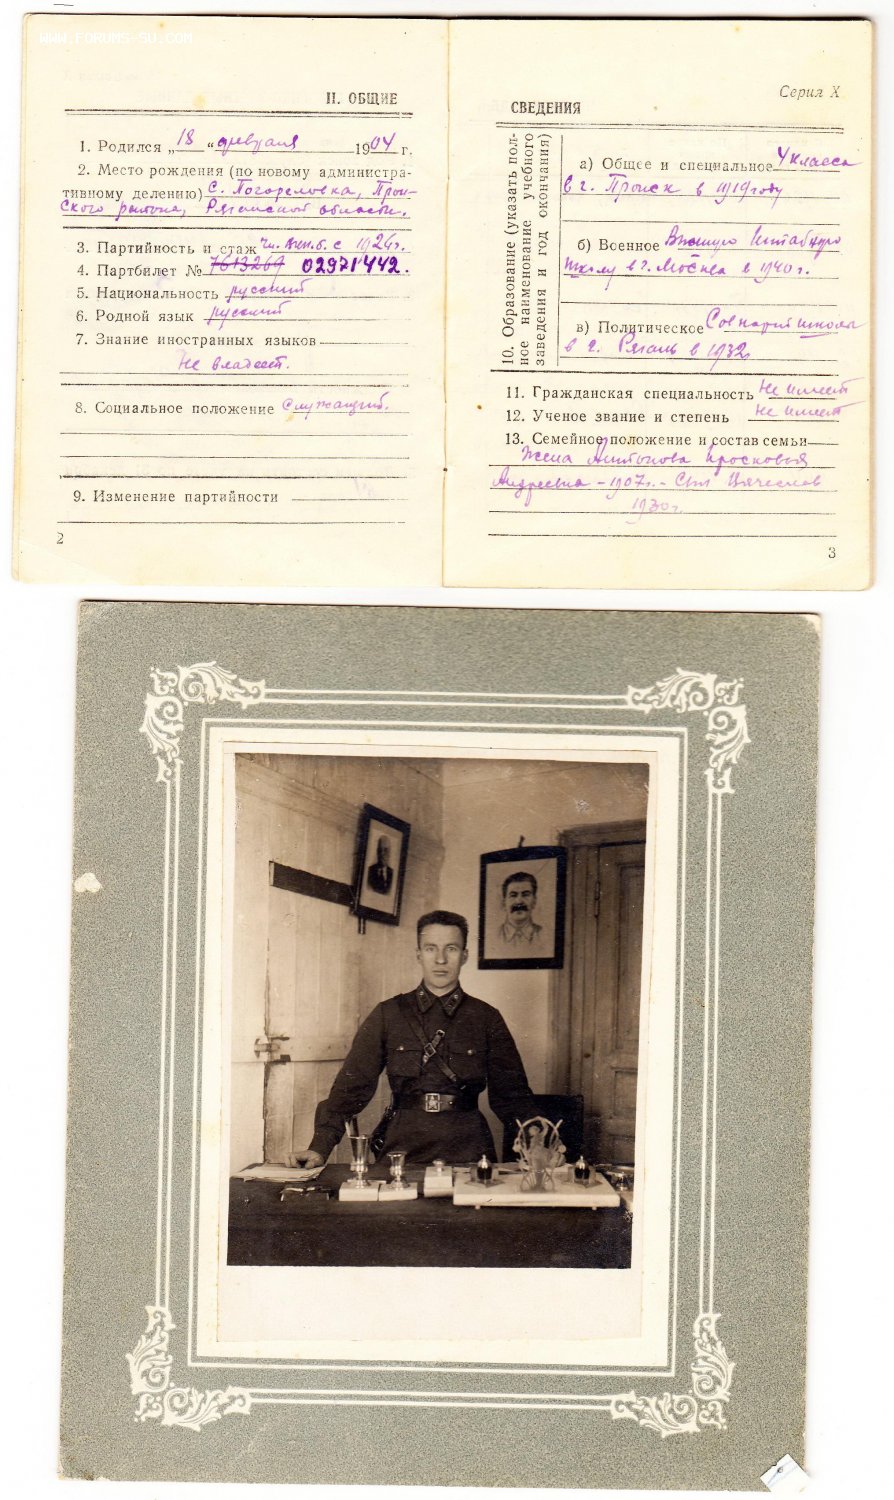 WWW.FORUMS-SU.COM
II. ОБЩИЕ
1. Родился „18“ февраля 1904 г.
2. Место рождения (по новому администра-
тивному делению) с. Погореловка, Прон-
ского района, Рязанской области.
3. Партийность и стаж Чл. ВКП.б. с 1926 г.
4. Партбилет № 7613269 02971442.
5. Национальность русский
6. Родной язык русский
7. Знание иностранных языков
Не владеет.
8. Социальное положение Служащий.
9. Изменение партийности
2
Серия X
СВЕДЕНИЯ
10. Образование (указать пол-
ное наименование учебного
заведения и год окончания)
а) Общее и специальное 4 класса
в г. Пронск в 1919 году
б) Военное Высшую штабную
школу в г. Москва в 1940 г.
в) Политическое Совпартшкола
в г. Рязань в 1932
11. Гражданская специальность Не имеет
12. Ученое звание и степень не имеет
13. Семейное положение и состав семьи
Жена Антонова Просковья
Андреевна - 1907 г. - Сын Вячеслав
1930 г.
3